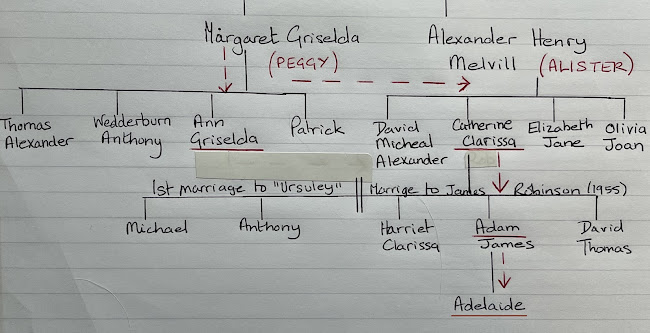 Margaret Griselda
(PEGGY)
Alexander Henry
Melvill (ALISTER)
Thomas
Alexander
Wedderburn
Anthony
Ann
Griselda
Patrick
David
Micheal
Alexander
Catherine
Clarissa
Elizabeth
Jane
Olivia
Joan
1st marriage to "Ursuley"
Marrige to James Robinson (1955)
Michael
Anthony
Harriet
Clarissa
Adam
James
David
Thomas
Adelaide